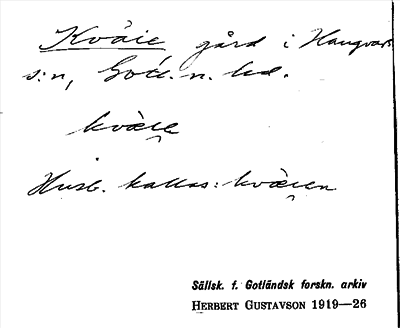 Kväie gård i Hangvar
s:n, Gotl. n. hd.
kvàie
Husb. kallas: kvàien
Sällsk. f. Gotländsk forskn. arkiv
HERBERT GUSTAVSON 1919—26